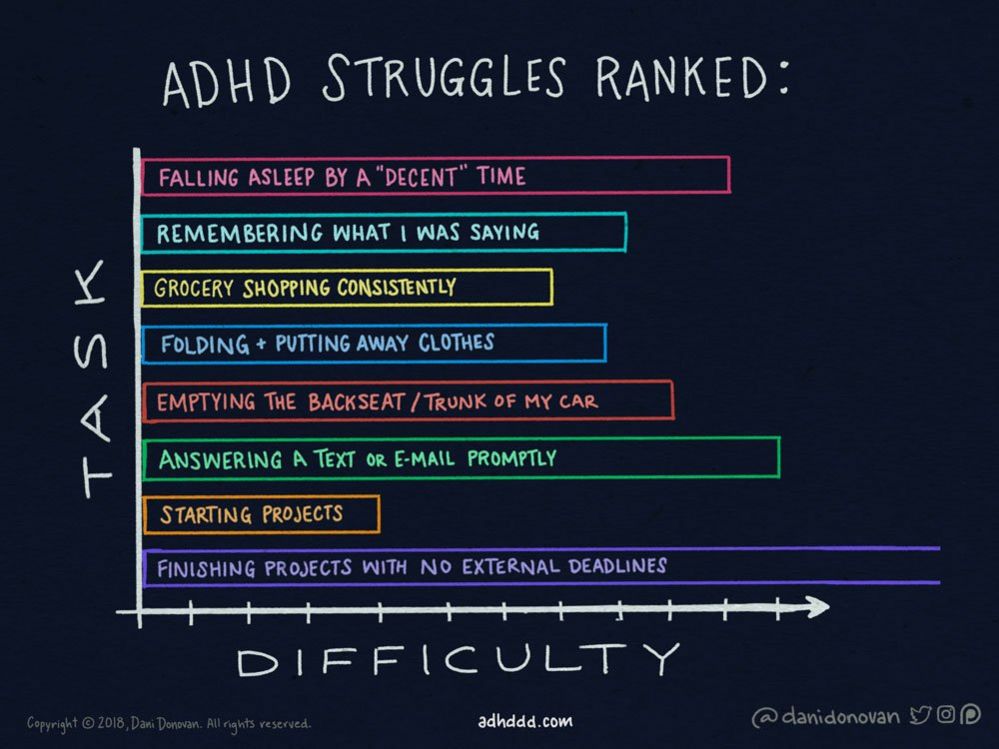 ADHD STRUGGLES RANKED:
FALLING ASLEEP BY A "DECENT" TIME
REMEMBERING WHAT I WAS SAYING
GROCERY SHOPPING CONSISTENTLY
FOLDING + PUTTING AWAY CLOTHES
EMPTYING THE BACKSEAT / TRUNK OF MY CAR
ANSWERING A TEXT OR E-MAIL PROMPTLY
STARTING PROJECTS
FINISHING PROJECTS WITH NO EXTERNAL DEADLINES
TASK
DIFFICULTY
Copyright © 2018, Dani Donovan. All rights reserved.
adhddd.com
@danidonovan